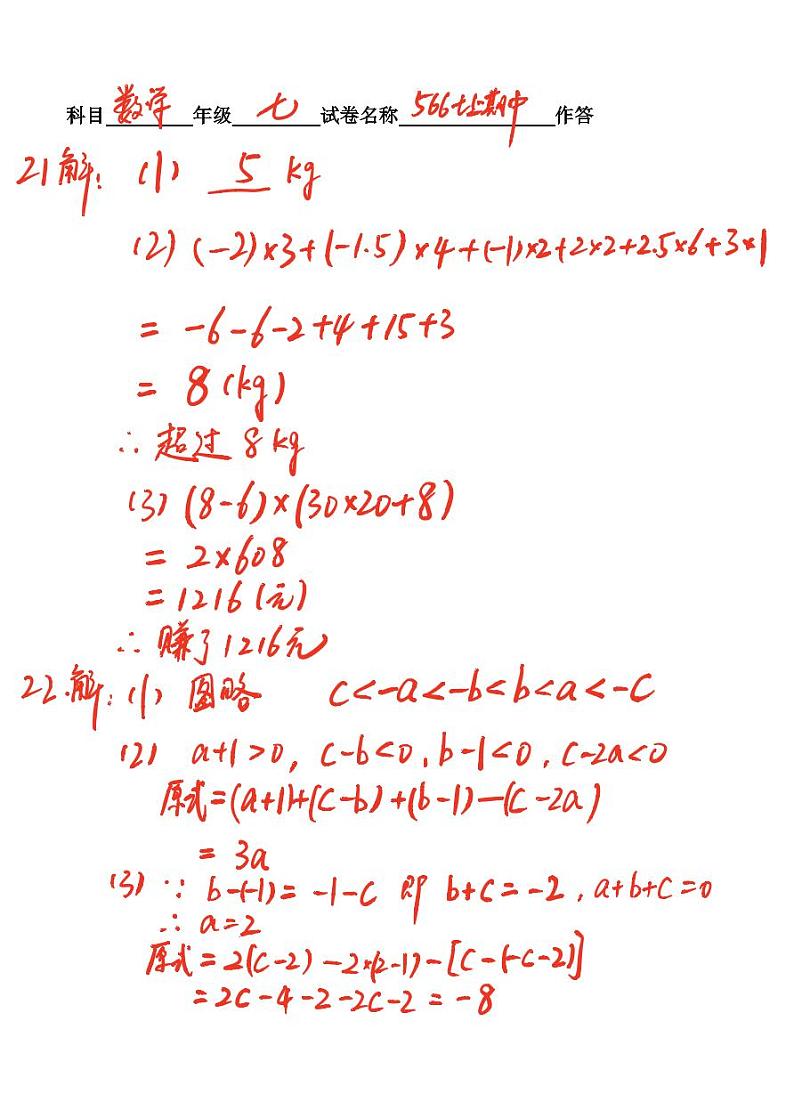 科目 数学 年级 七 试卷名称 566七上期中 作答
21解: (1) 5 kg
(2) (-2)×3+(-1.5)×4+(-1)×2+2×2+2.5×6+3×1
= -6-6-2+4+15+3
= 8 (kg)
∴ 超过 8 kg
(3) (8-6)×(30×20+8)
= 2×608
=1216(元)
∴ 赚了1216元
22.解: (1) 图略 c<-a<-b<b<a<-c
(2) a+1>0, c-b<0, b-1<0, c-2a<0
原式=(a+1)+(c-b)+(b-1)-(c-2a)
= 3a
(3) ∵ b-(-1)= -1-c 即 b+c=-2, a+b+c=0
∴ a=2
原式=2(c-2)-2×(2-1)-[c-(-c-2)]
=2c-4-2-2c-2=-8